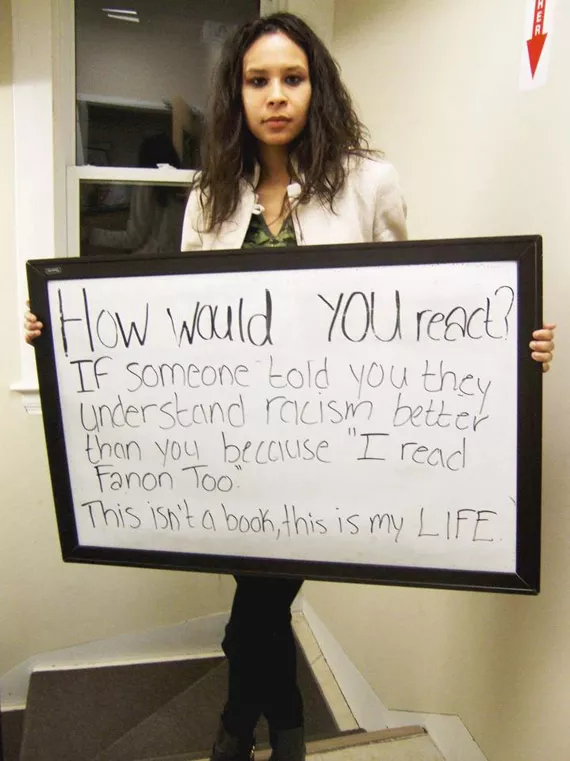 HER
How would YOU react?
If someone told you they
understand racism better
than you because "I read
Fanon Too"
This isn't a book, this is my LIFE.